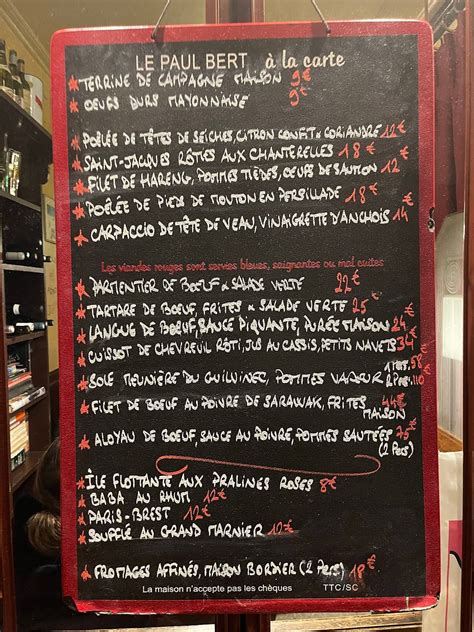 LE PAUL BERT à la carte
* TERRINE DE CAMPAGNE MAISON 9€
* OEUFS DURS MAYONNAISE 9€
* POÊLÉE DE TÊTES DE SEICHES, CITRON CONFIT & CORIANDRE 12€
* SAINT-JACQUES RÔTIES AUX CHANTERELLES 18€
* FILET DE HARENG, POMMES TIÈDES, OEUFS DE SAUMON 12€
* POÊLÉE DE PIEDS DE MOUTON EN PERSILLADE 18€
* CARPACCIO DE TÊTE DE VEAU, VINAIGRETTE D'ANCHOIS 14€
Les viandes rouges sont servies bleues, saignantes ou mal cuites
* PARMENTIER DE BOEUF & SALADE VERTE 22€
* TARTARE DE BOEUF, FRITES & SALADE VERTE 25€
* LANGUE DE BOEUF, SAUCE PIQUANTE, PURÉE MAISON 24€
* CUISSOT DE CHEVREUIL RÔTI, JUS AU CASSIS, PETITS NAVETS 34€
* SOLE MEUNIÈRE DU GUILVINEC, POMMES VAPEUR 1 Pers. 58 2 Pers. 110
* FILET DE BOEUF AU POIVRE DE SARAWAK, FRITES MAISON 44€
* ALOYAU DE BOEUF, SAUCE AU POIVRE, POMMES SAUTÉES 75€
(2 Pers)
* ÎLE FLOTTANTE AUX PRALINES ROSES 8€
* BABA AU RHUM 12€
* PARIS-BREST 12€
* SOUFFLÉ AU GRAND MARNIER 12€
* FROMAGES AFFINÉS, MAISON BORDIER (2 Pers) 18€
La maison n'accepte pas les chèques TTC/SC